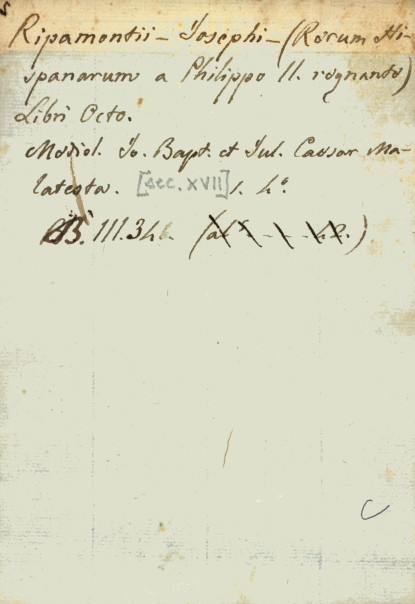 Ripamontii - Josephi - (Rerum Hi-
spanarum a Philippo II. regnante)
Libri Octo.
Mediol. Jo. Bapt. et Jul. Caesar Ma-
latesta. [sec. XVII] 1. 4°.
B. III.34